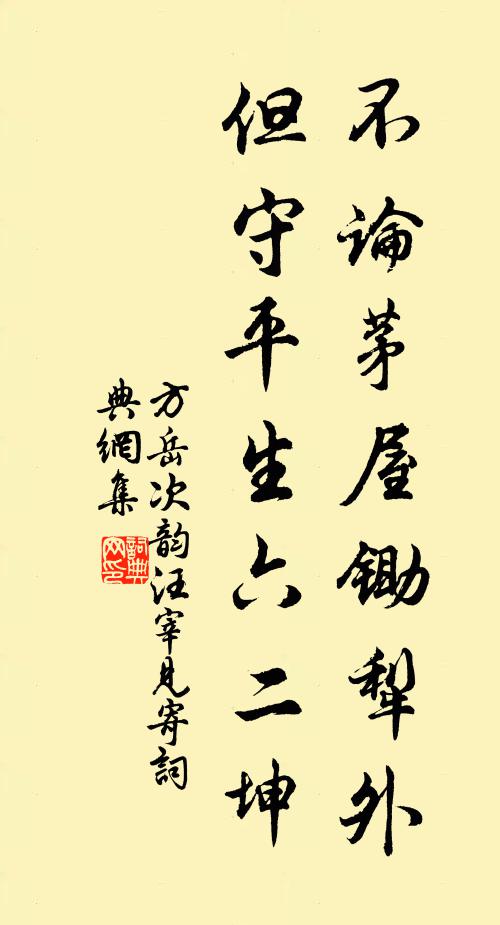 不論茅屋鋤犁外
但守平生六二坤
方岳次韵汪宰見寄詞
典網集
詞典
网印